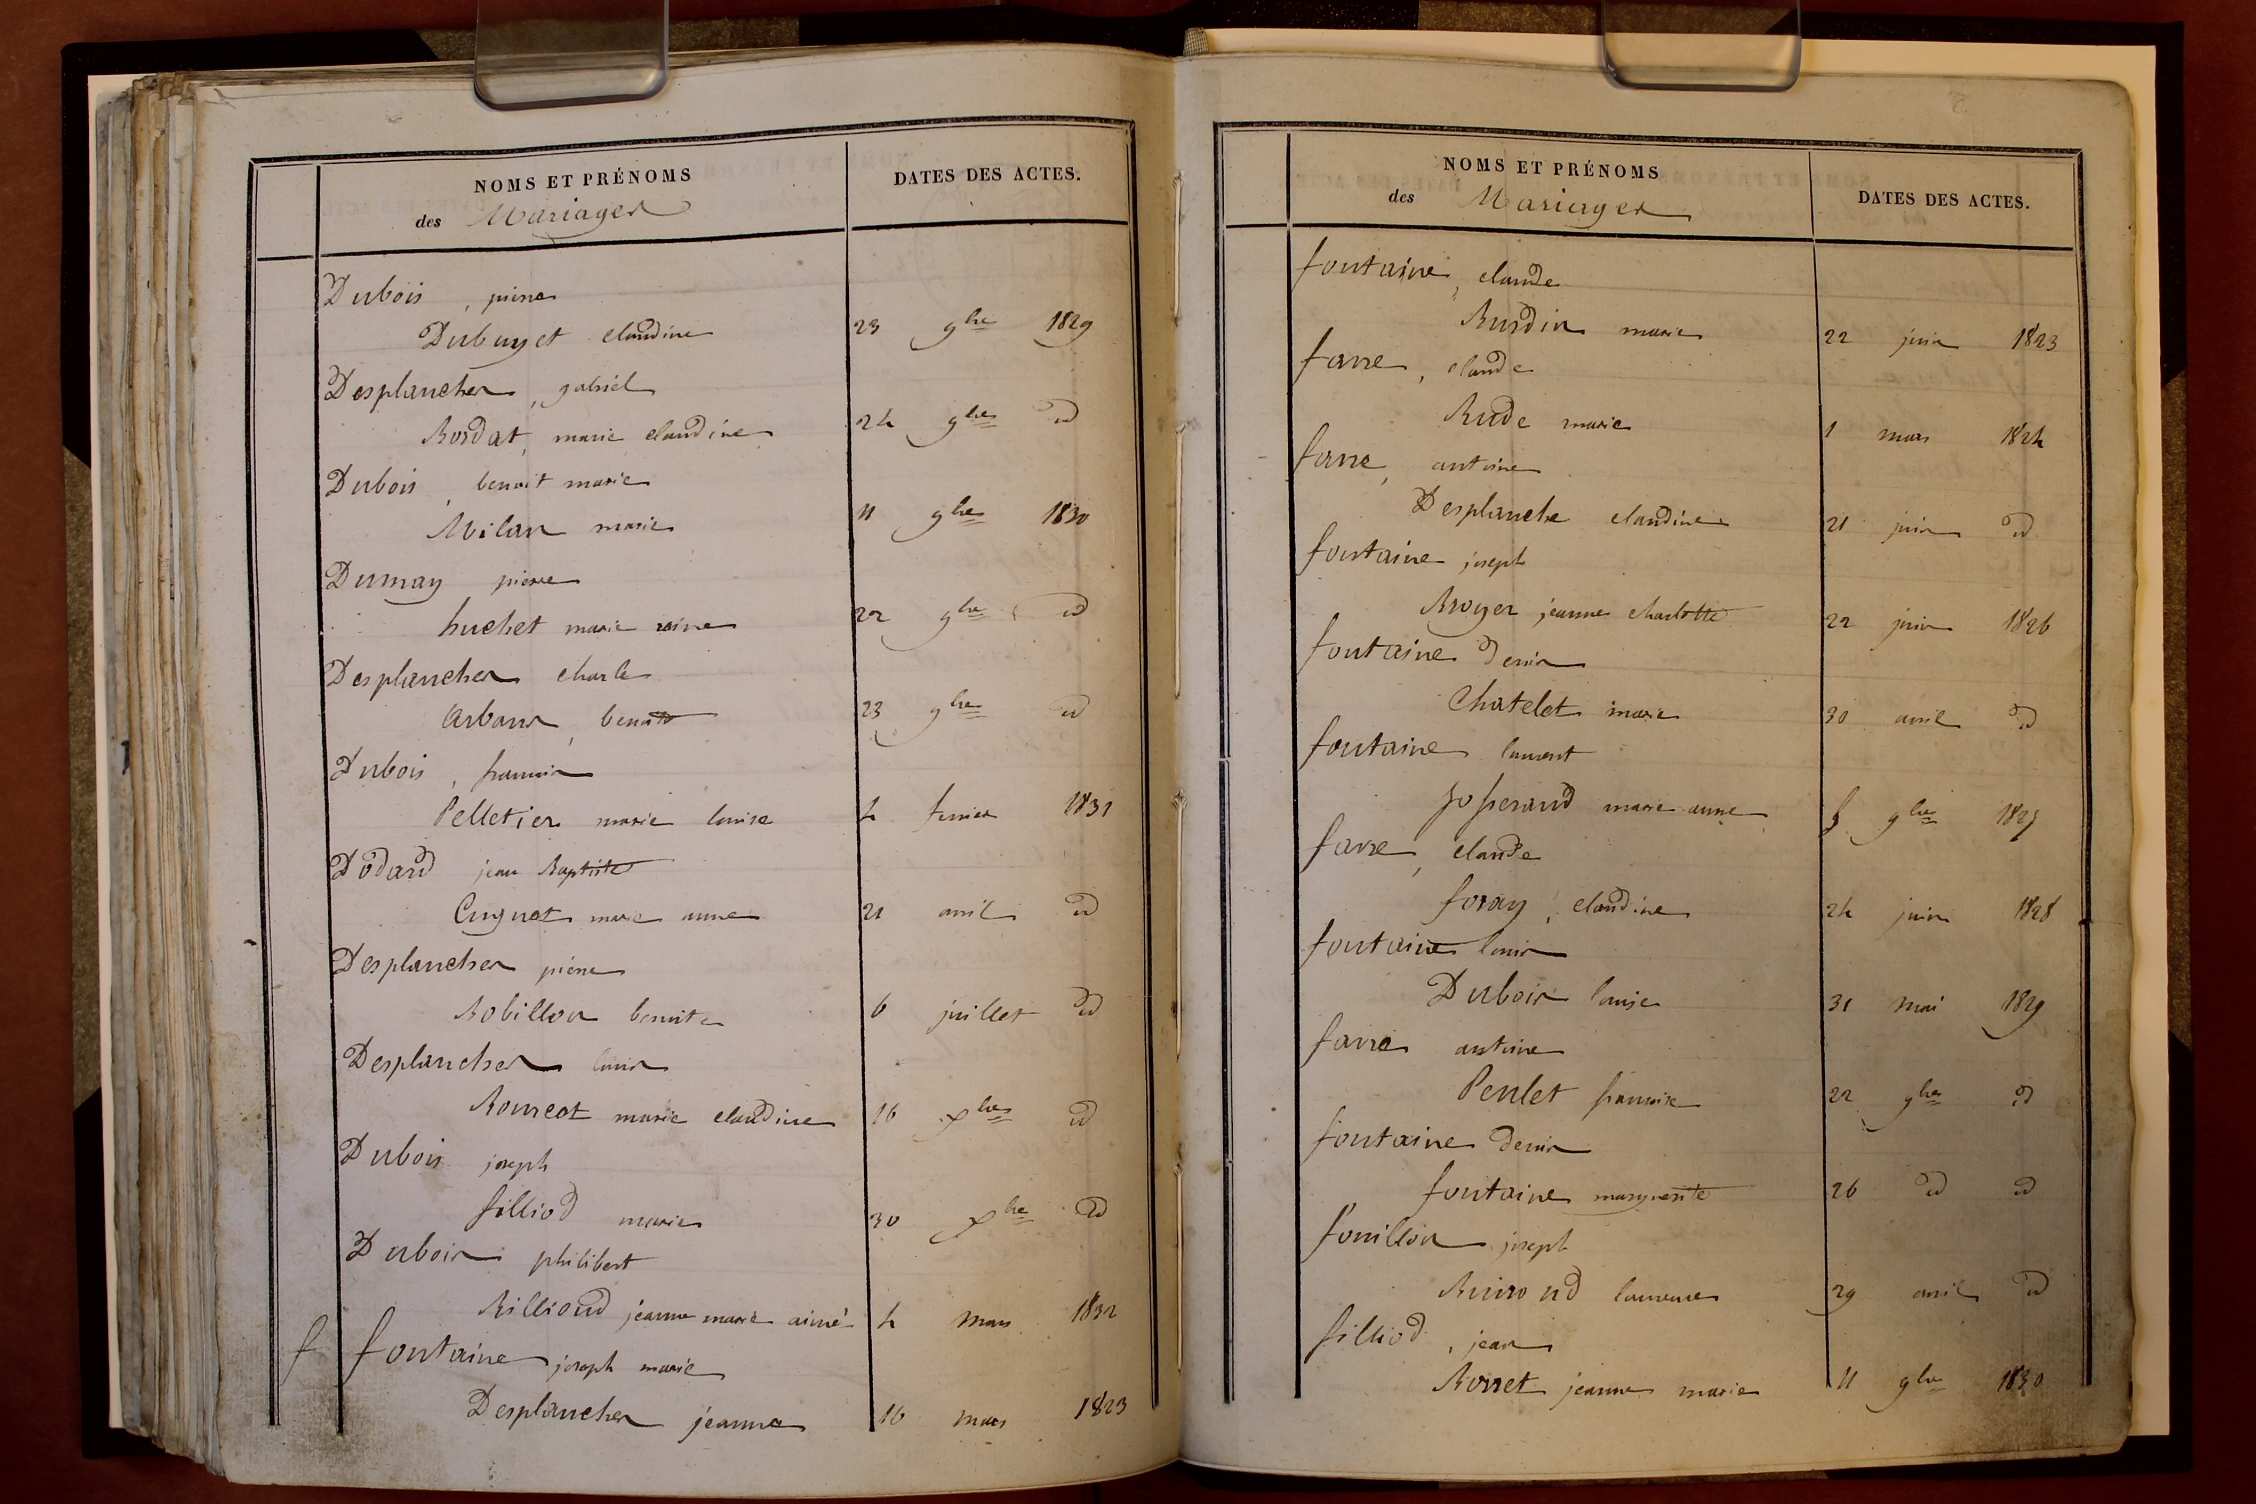 NOMS ET PRÉNOMS
des Mariages
DATES DES ACTES.
Dubois, pierre
Dubuyet claudine 23 9bre 1829
Desplanches, gabriel
Bordat, marie claudine 24 9bre id
Dubois, benoit marie
Milan marie 11 9bre 1830
Dumay pierre
huchet marie reine 22 9bre id
Desplanches charle
Arbans, benoite 23 9bre id
Dubois, francois
Pelletier marie louise 4 fevrier 1831
Dodard jean Baptiste
Cugnot marie anne 21 avril id
Desplanches pierre
Robillon benoite 6 juillet id
Desplanches louis
Bourcot marie claudine 16 xbre id
Dubois joseph
filliod marie 30 xbre id
Dubois philibert
Billioud jeanne marie aimé 4 mars 1832
f fontaine joseph marie
Desplanches jeanne 16 mars 1823
NOMS ET PRÉNOMS
des Mariages
DATES DES ACTES.
fontaine, claude
Burdin marie 22 juin 1823
favre, claude
Rude marie 1 mars 1824
favre, antoine
Desplanche claudine 21 juin id
fontaine joseph
Broyer jeanne charlotte 22 juin 1826
fontaine denis
Chatelet marie 30 avril id
fontaine laurent
Josserand marie anne 9bre 1827
favre, claude
foray, claudine 24 juin 1828
fontaine louis
Dubois louise 31 mai 1829
favre antoine
Penlet francoise 22 9bre id
fontaine denis
fontaine marguerite 26 id id
fouillon joseph
laurence 29 avril id
filliod, jean
Borret jeanne marie 11 9bre 1830